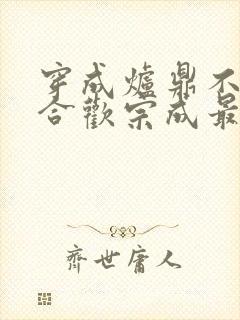 穿成爐鼎不
合歡宗成最
齊世庸人